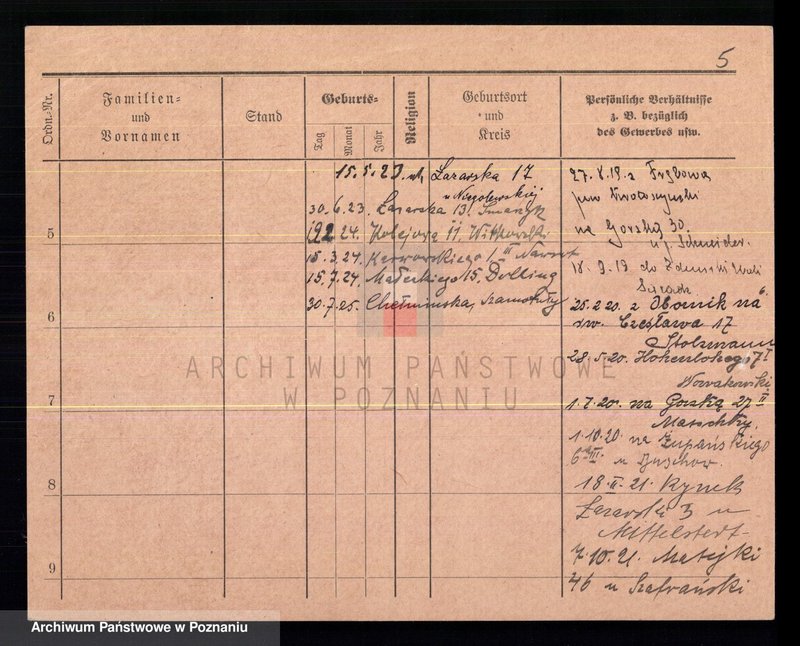 5
Ordn.-Nr.
Familien-
und
Vornamen
Stand
Geburts-
Tag
Monat
Jahr
Religion
Geburtsort
und
Kreis
Persönliche Verhältnisse
z. B. bezüglich
des Gewerbes usw.
15.5.23. Łazarska 17
u Niegolewskiej
30.6.23. Łazarska 13.
192 24. Kolejowa 11. Witkowski
15.3.24. 1 III Nawrot
15.7.24. Małeckiego 15, Dolling
30.7.25. Chełmińska, Szamotuły
27.8.19. z
pow. Krotoszyński
na Gorską 30.
u p. Schneider.
18.9.19 do
25.2.20. z Obornik na
św. Czesława 17
Stolzmann
28.5.20. Hohenlohego 7 I
Nowakowski
1.7.20. na Gorską 27 II
1.10.20. na Żupańskiego
6 III. u
18.II.21. Rynek
Łazarski 3 u
Mittelstedt
7.10.21. Matejki
46 u Szafrański
5
6
7
8
9
ARCHIWUM PAŃSTWOWE
W POZNANIU
Archiwum Państwowe w Poznaniu